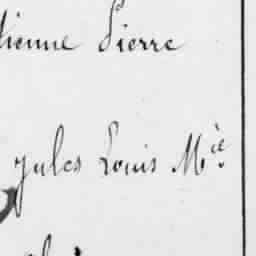 tienne Pierre
Jules Louis M^ie